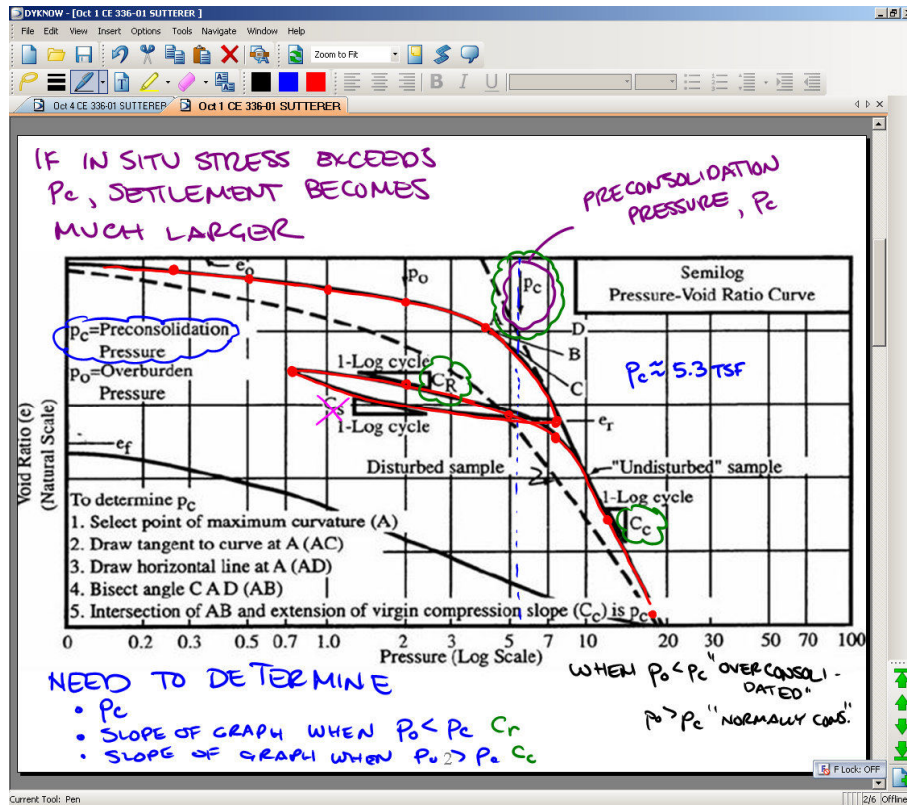 DYKNOW - [Oct 1 CE 336-01 SUTTERER ]
File Edit View Insert Options Tools Navigate Window Help
Zoom to Fit
B I U
Oct 4 CE 336-01 SUTTERER Oct 1 CE 336-01 SUTTERER
IF IN SITU STRESS EXCEEDS
Pc, SETTLEMENT BECOMES
MUCH LARGER
PRECONSOLIDATION
PRESSURE, Pc
eo
po
pc
Semilog
Pressure-Void Ratio Curve
pc=Preconsolidation
Pressure
po=Overburden
Pressure
A
D
B
C
Pc ≈ 5.3 TSF
1-Log cycle
CR
Cs
1-Log cycle
er
ef
Disturbed sample
"Undisturbed" sample
1-Log cycle
Cc
Void Ratio (e)
(Natural Scale)
To determine pc
1. Select point of maximum curvature (A)
2. Draw tangent to curve at A (AC)
3. Draw horizontal line at A (AD)
4. Bisect angle C A D (AB)
5. Intersection of AB and extension of virgin compression slope (Cc) is pc
0 0.2 0.3 0.5 0.7 1.0 2 3 5 7 10 20 30 50 70 100
Pressure (Log Scale)
NEED TO DETERMINE
• Pc
• SLOPE OF GRAPH WHEN Po < Pc Cr
• SLOPE OF GRAPH WHEN Po > Pc Cc
2
WHEN Po < Pc "OVERCONSOLI-
DATED"
Po > Pc "NORMALLY CONS."
F Lock: OFF
Current Tool: Pen
2/6 Offline